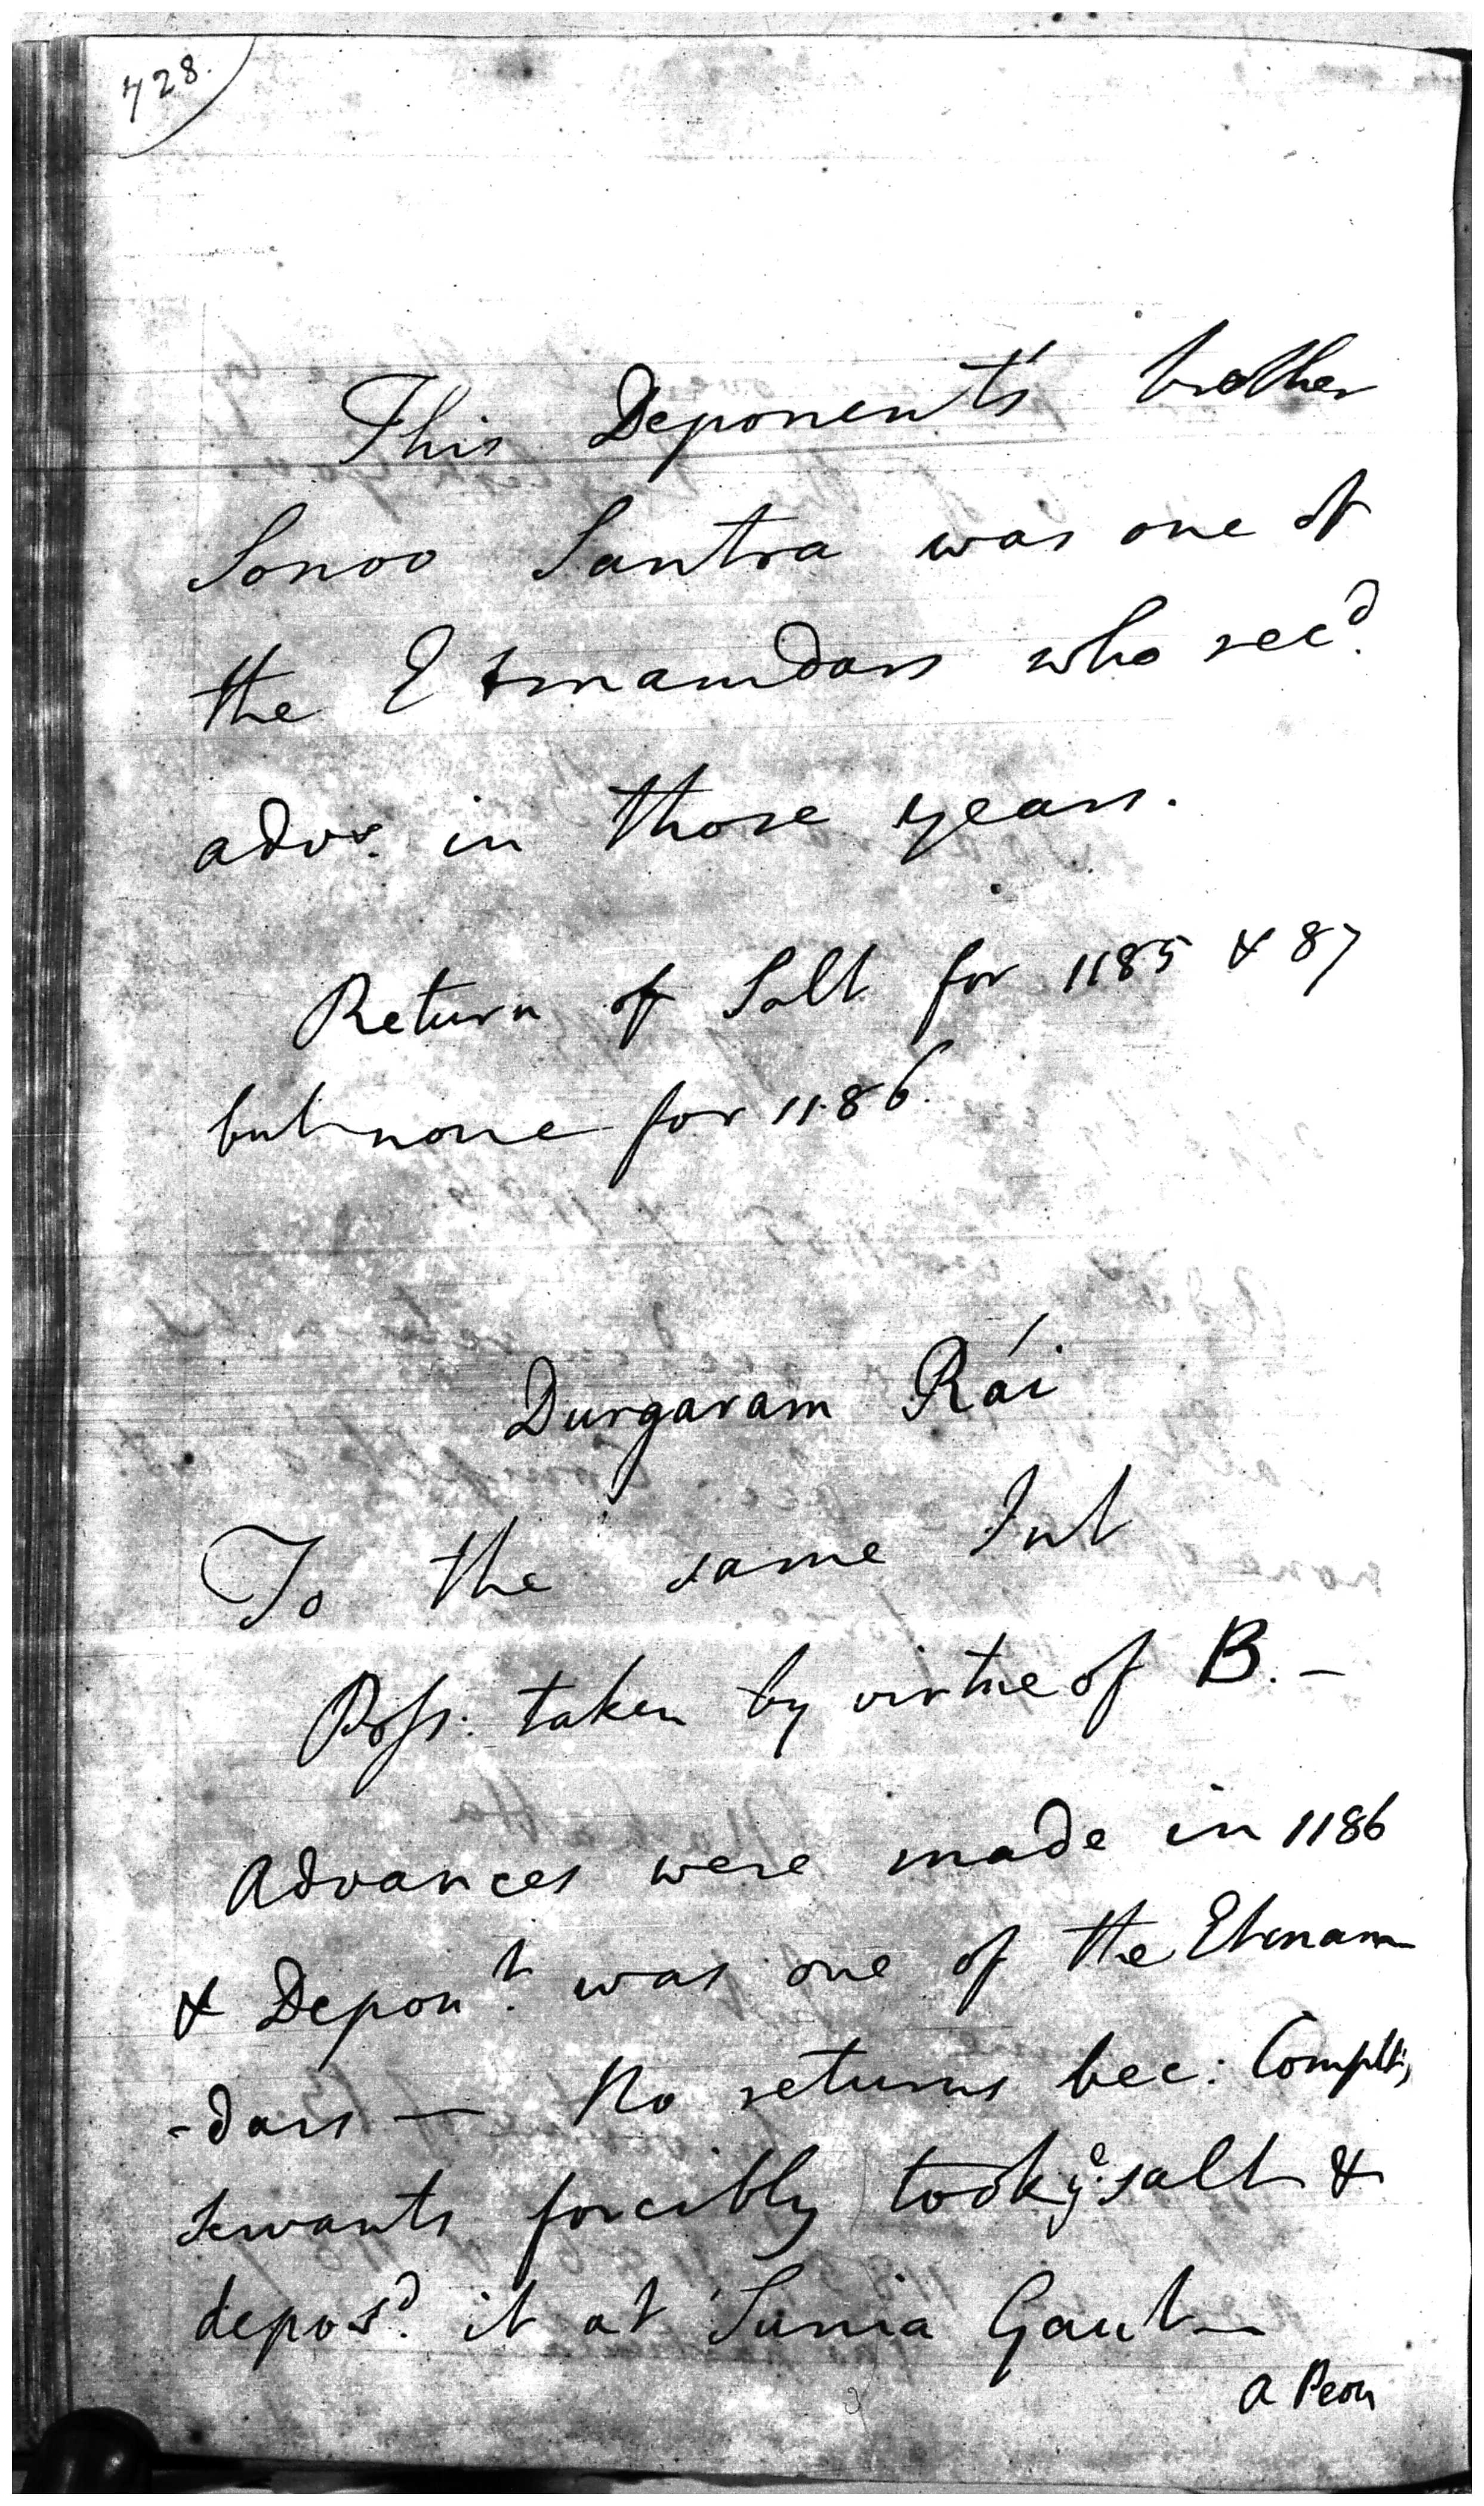 728.
This Deponent's brother
Sonoo Santra was one of
the Etmamdars who recd.
advs. in those years.
Return of Salt for 1185 & 87
but none for 1186.
Durgaram Rái
To the same Int
Poss: taken by virtue of B. —
Advances were made in 1186
& Depont. was one of the Etmam
-dars — No returns bec: Complts,
servants forcibly took ye. salt &
deposd. it at Sunia Gaut —
a Peon